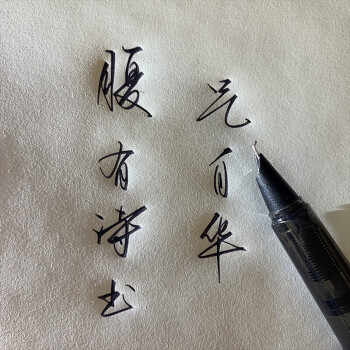 腹有诗书
气自华